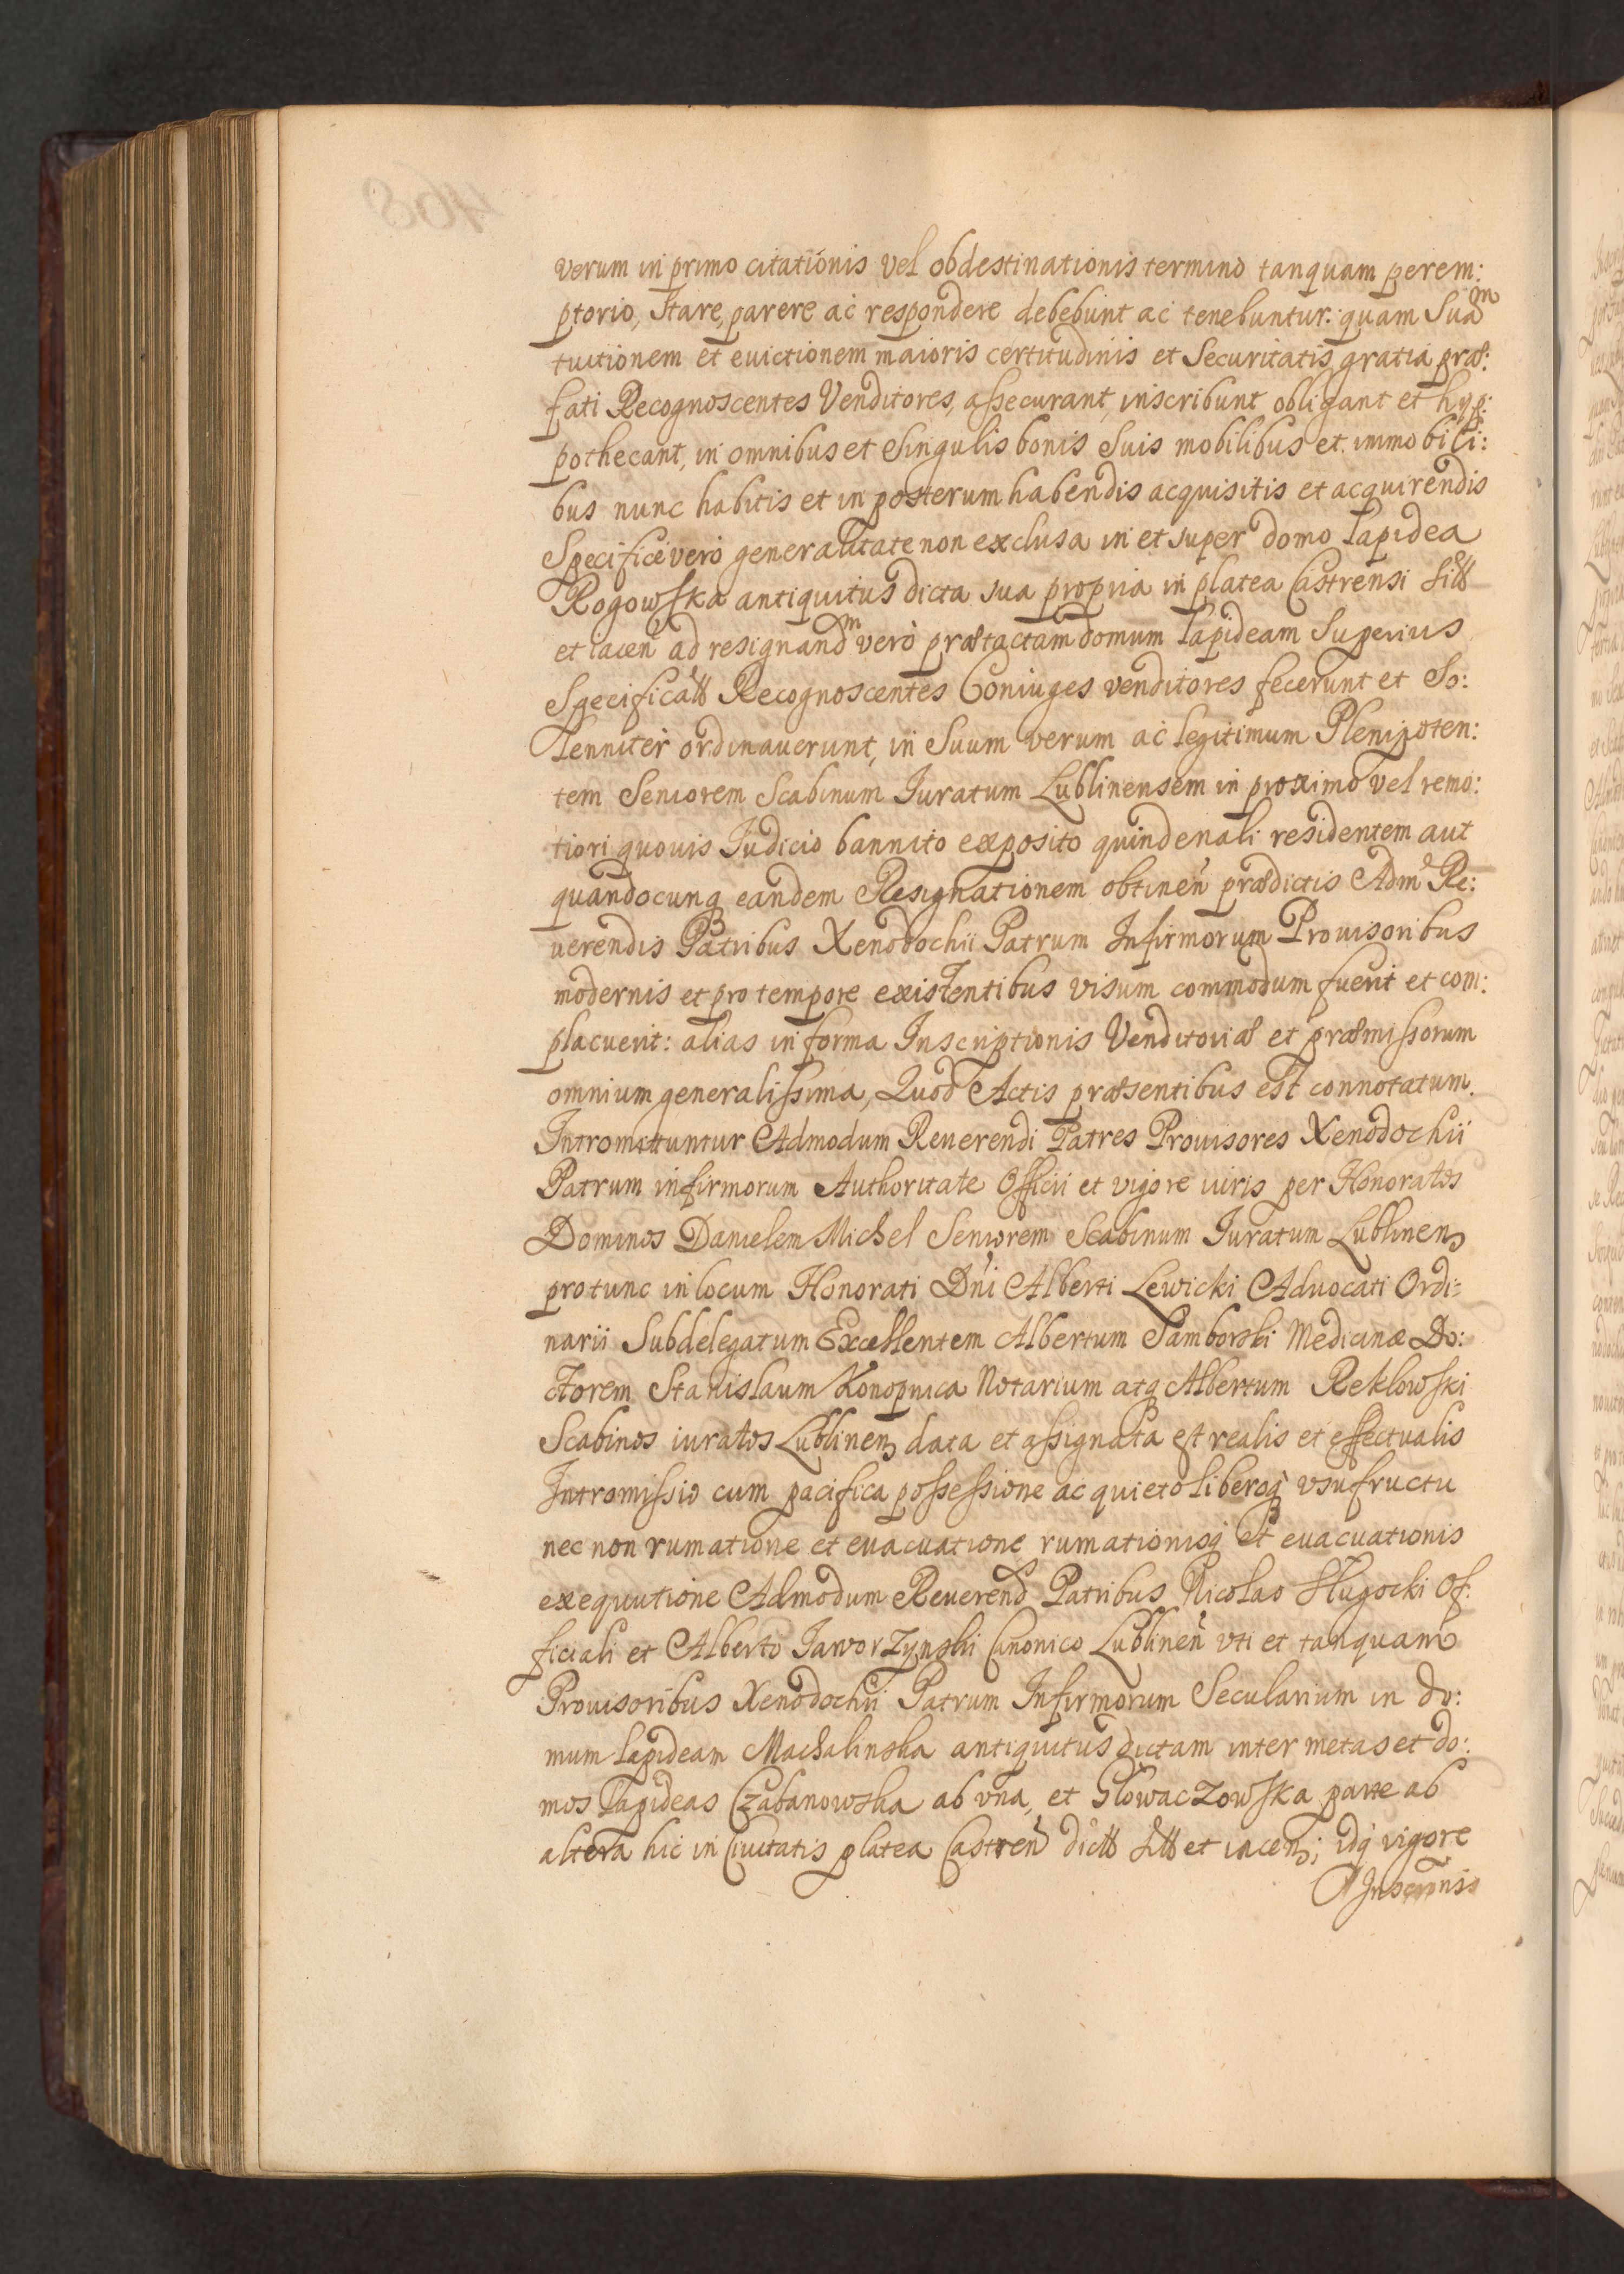 verum in primo citationis vel obdestinationis termino tanquam perem:
ptorio, stare, parere ac respondere debebunt ac tenebuntur. quam Suam
tuitionem et euictionem maioris certitudinis et Securitatis gratia præ:
fati Recognoscentes Venditores, assecurant, inscribunt obligant et hyp:
pothecant, in omnibus et Singulis bonis Suis mobilibus et immobili:
bus nunc habitis et in posterum habendis acquisitis et acquirendis
Specifice vero generalitate non exclusa in et super domo Lapidea
Rogowska antiquitus dicta sua propria in platea Castrensi sitt
et iacen ad resignandm vero prætactam domum Lapideam Superius
Specificatt Recognoscentes Coniuges venditores fecerunt et So:
lenniter ordinauerunt, in Suum verum ac legitimum Plenipoten:
tem Seniorem Scabinum Iuratum Lublinensem in proximo vel remo:
tiori quouis Iudicio bannito exposito quindenali residentem aut
quandocunq eandem Resignationem obtinen prædictis Adm Re:
uerendis Patribus Xenodochii Patrum Infirmorum Prouisoribus
modernis et pro tempore existentibus visum commodum fuerit et com:
placuerit: alias in forma Inscriptionis Venditoriæ et præmissorum
omnium generalissima, Quod Actis præsentibus est connotatum.
Intromittuntur Admodum Reuerendi Patres Prouisores Xenodochii
Patrum infirmorum Authoritate Officii et vigore iuris per Honoratos
Dominos Danielem Michel Seniorem Scabinum Iuratum Lublinen
protunc in locum Honorati Dni Alberti Lewicki Aduocati Ordi:
narii Subdelegatum Excellentem Albertum Samborski Medicinæ Do:
ctorem Stanislaum Konopnica Notarium atq Albertum Reklowski
Scabinos iuratos Lublinen data et assignata est realis et effectualis
Intromissio cum pacifica possessione ac quieto liberoq vsufructu
nec non rumatione et euacuatione rumationisq et euacuationis
exequutione Admodum Reuerend Patribus Nicolao Slugocki Of:
ficiali et Alberto Jaworzynski Canonico Lublinen vti et tanquam
Prouisoribus Xenodochii Patrum Infirmorum Secularium in do:
mum Lapideam Machalinska antiquitus dictam inter metas et do:
mos Lapideas Czabanowska ab vna, et Glowaczowska parte ab
altera hic in Ciuitatis platea Castren dictt sitt et iacen; idq vigore
Inscripnis